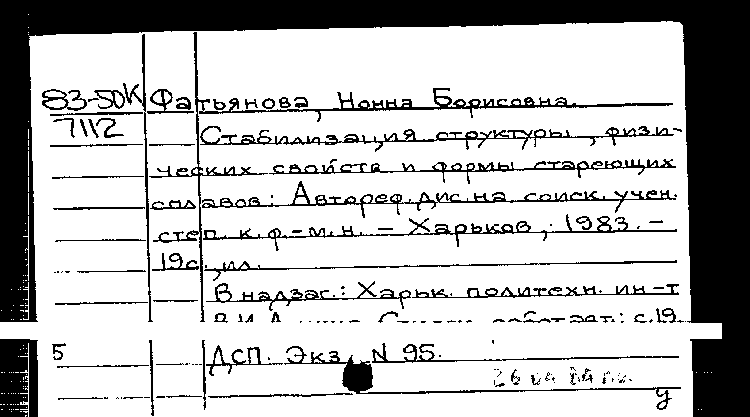 83-50К Фатьянова, Нонна Борисовна.
7112 Стабилизация структуры, физи-
ческих свойств и формы стареющих
сплавов: Автореф. дис. на соиск. учен.
степ. к.ф.-м.н. – Харьков, 1983. –
19с., ил.
В надзаг.: Харьк. политехн. ин-т
с.19
5 ДСП. Экз. N 95.
у